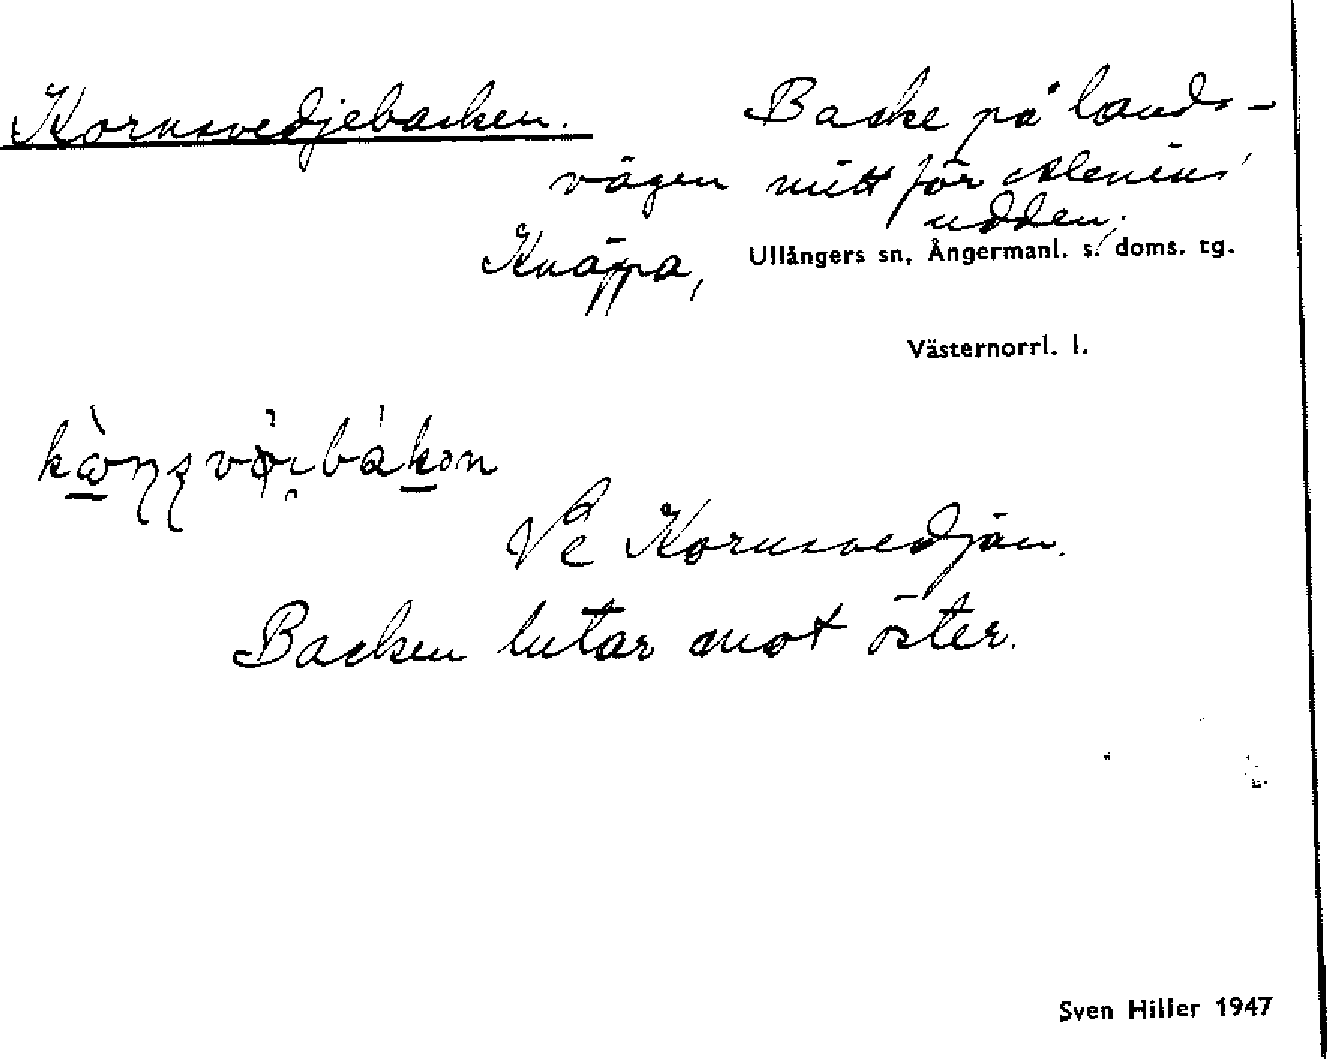 Kornsvedjebacken. Backe på lands-
vägen mitt för Alenius'
udden;
Knäppa, Ullångers sn, Ångermanl. s. doms. tg.
Västernorrl. l.
Se Kornsvedjan.
Backen lutar mot öster.
Sven Hiller 1947